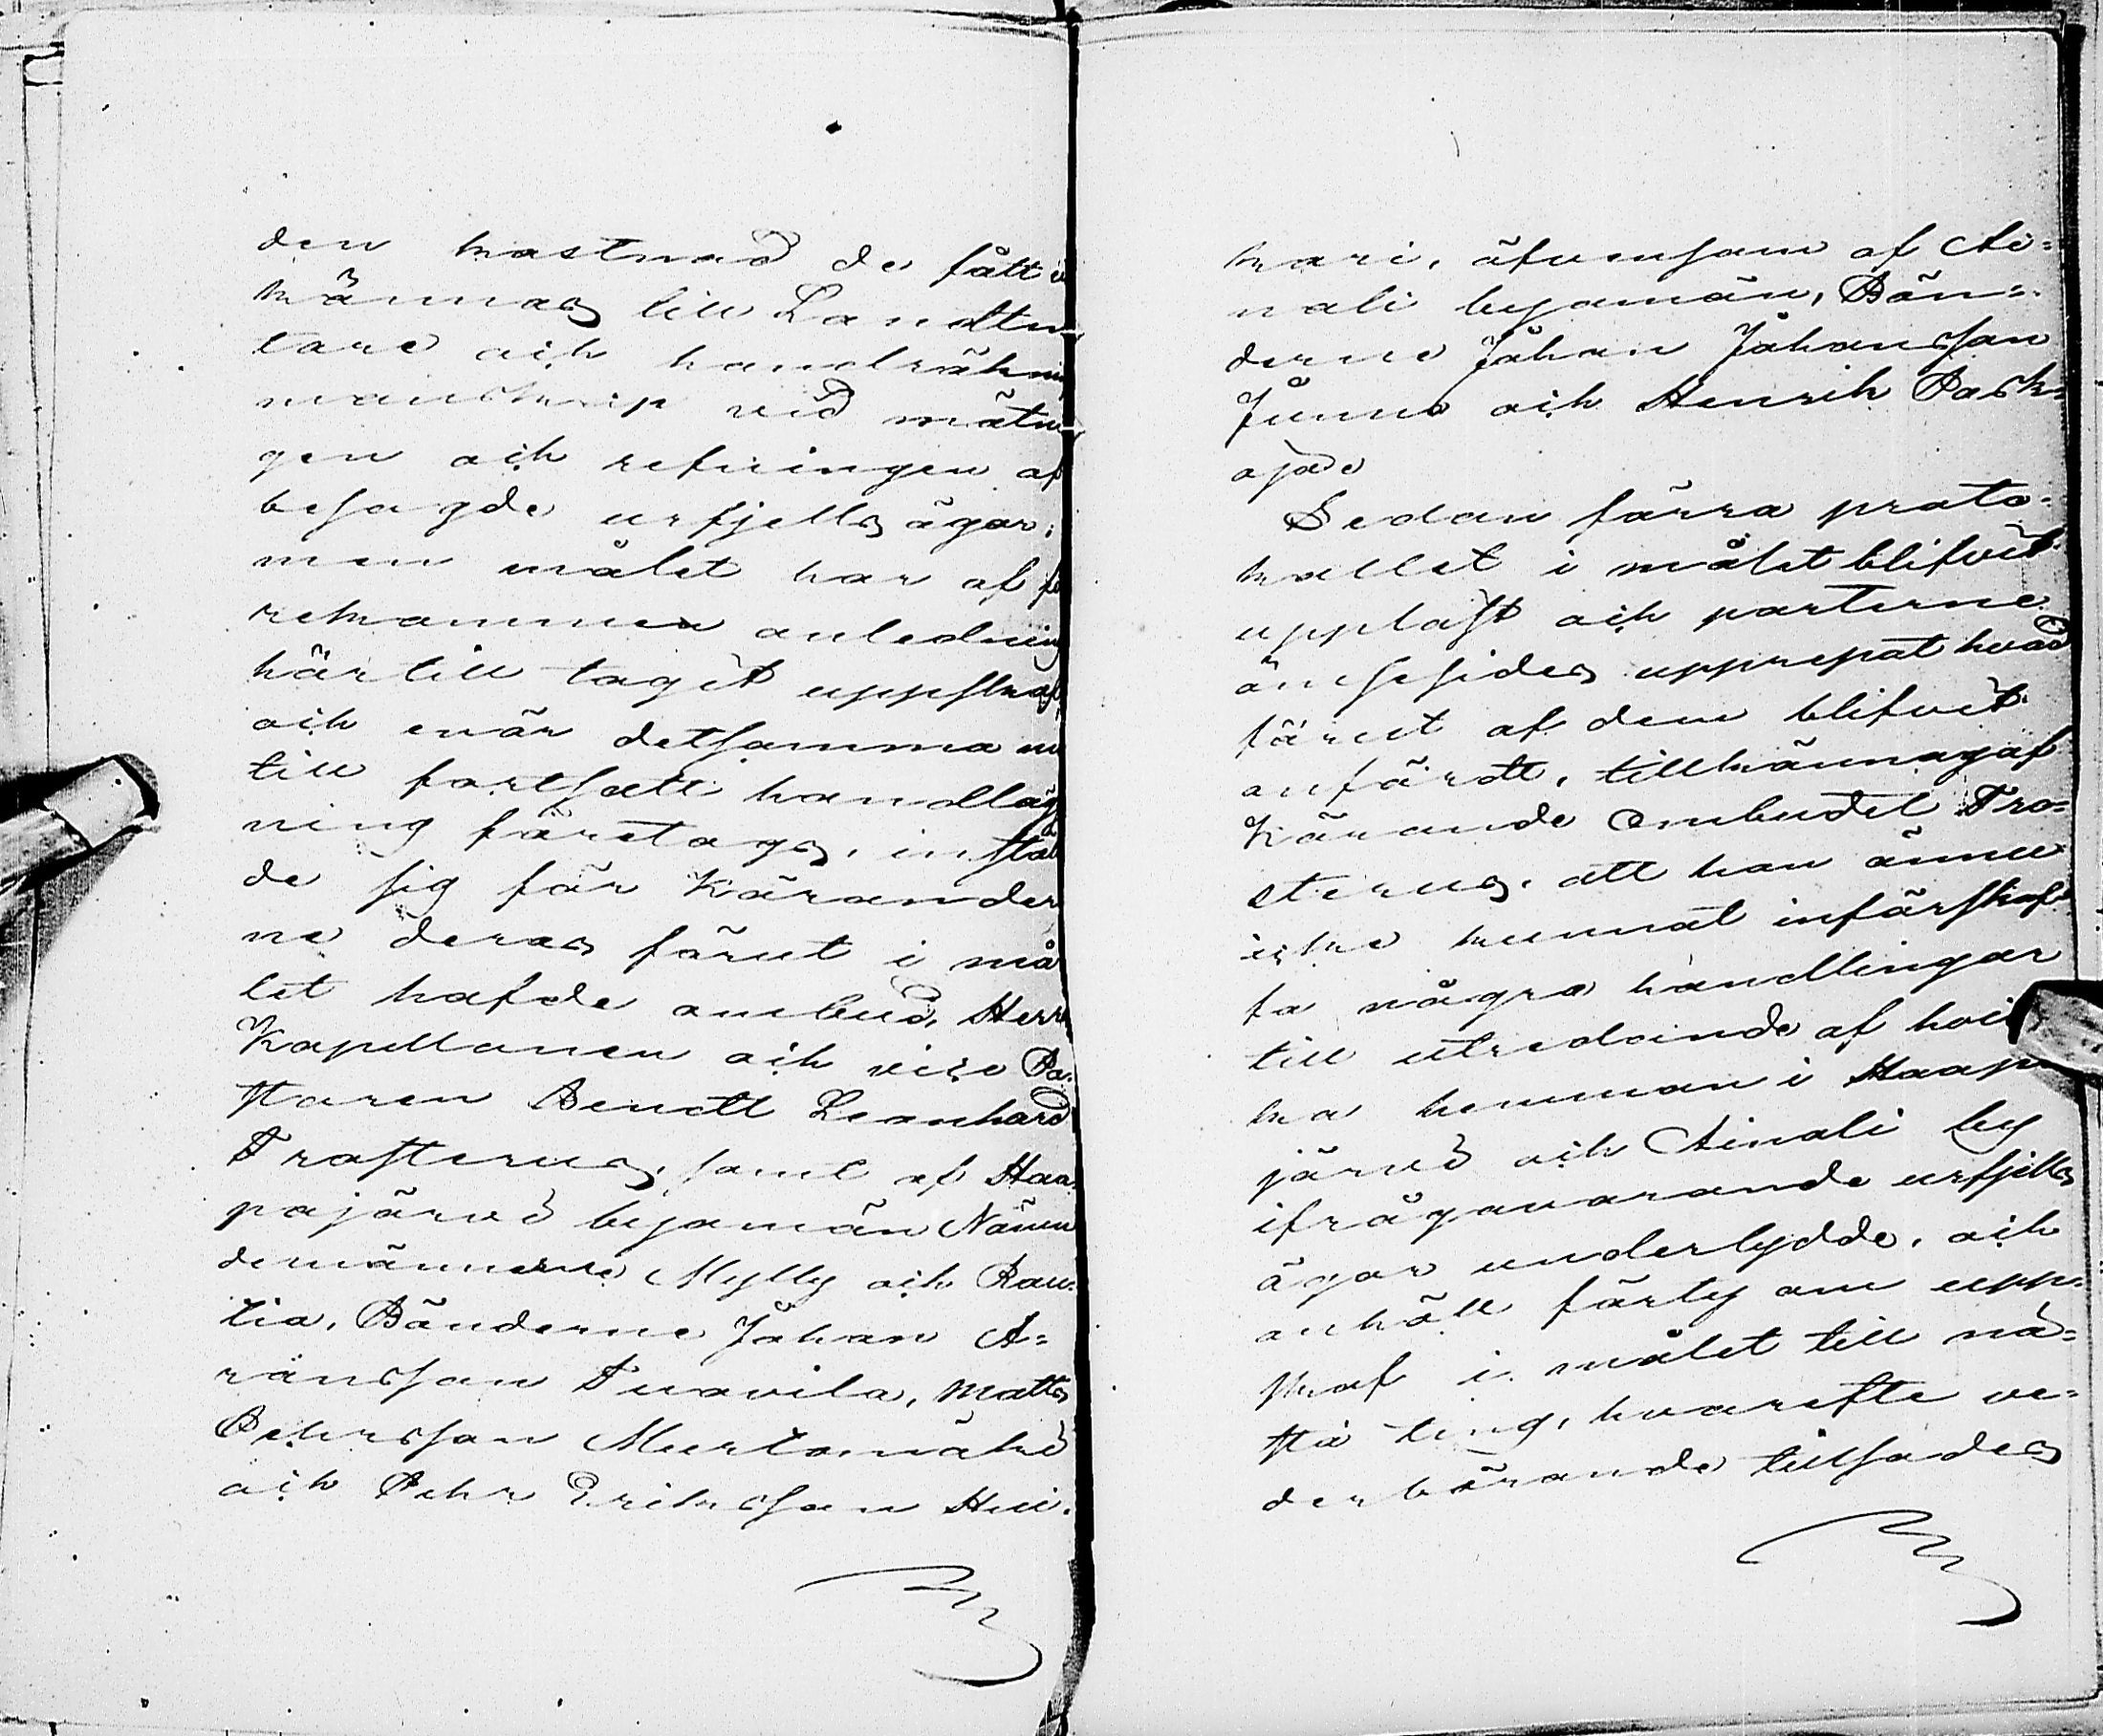 den kostnad de fått
kännas till Landtm
tare och handräkni
manskap vid mätni
gen och refningen af
besagde urfjells ägor;
men målet har af fö
rekommen anledning
härtill tagit uppskof,
och enär detsamma nu
till fortsatt handlägg
ning företogs, instäl
de sig för Kärander
ne deras förut i må
let hafde ombud, Herr
Kapellanen och vice Pa-
storen Bendt Leonhard
Frosterus, samt af Haa-
pajärvi byamän Nämn
demännerne Mylly och Rau-
tia, Bönderne Johan A-
ronsson Tuovila, Matts
Pehrsson Murtomäki
och Pehr Eriksson Hui-
kari, äfvensom af Ai-
nali byamän, Bön-
derne Johan Johansson
Junno och Henrik Pask-
oja
Sedan förra proto-
kollet i målet blifvit
uppläst och parterne
ömsesides upprepat hvad
förut af dem blifvit
anfördt, tillkännagaf
Kärande Ombudet Fro-
sterus, att han ännu
icke kunnat införskaf
fa några handlingar
till utredande af hvil
ka hemman i Haapa
järvi och Ainali by
ifrågavarande urfjells
ägor underlydde, och
anhöll förty om upp-
skof i målet till nä-
sta ting, hvarefte ve-
derbörande tillsades